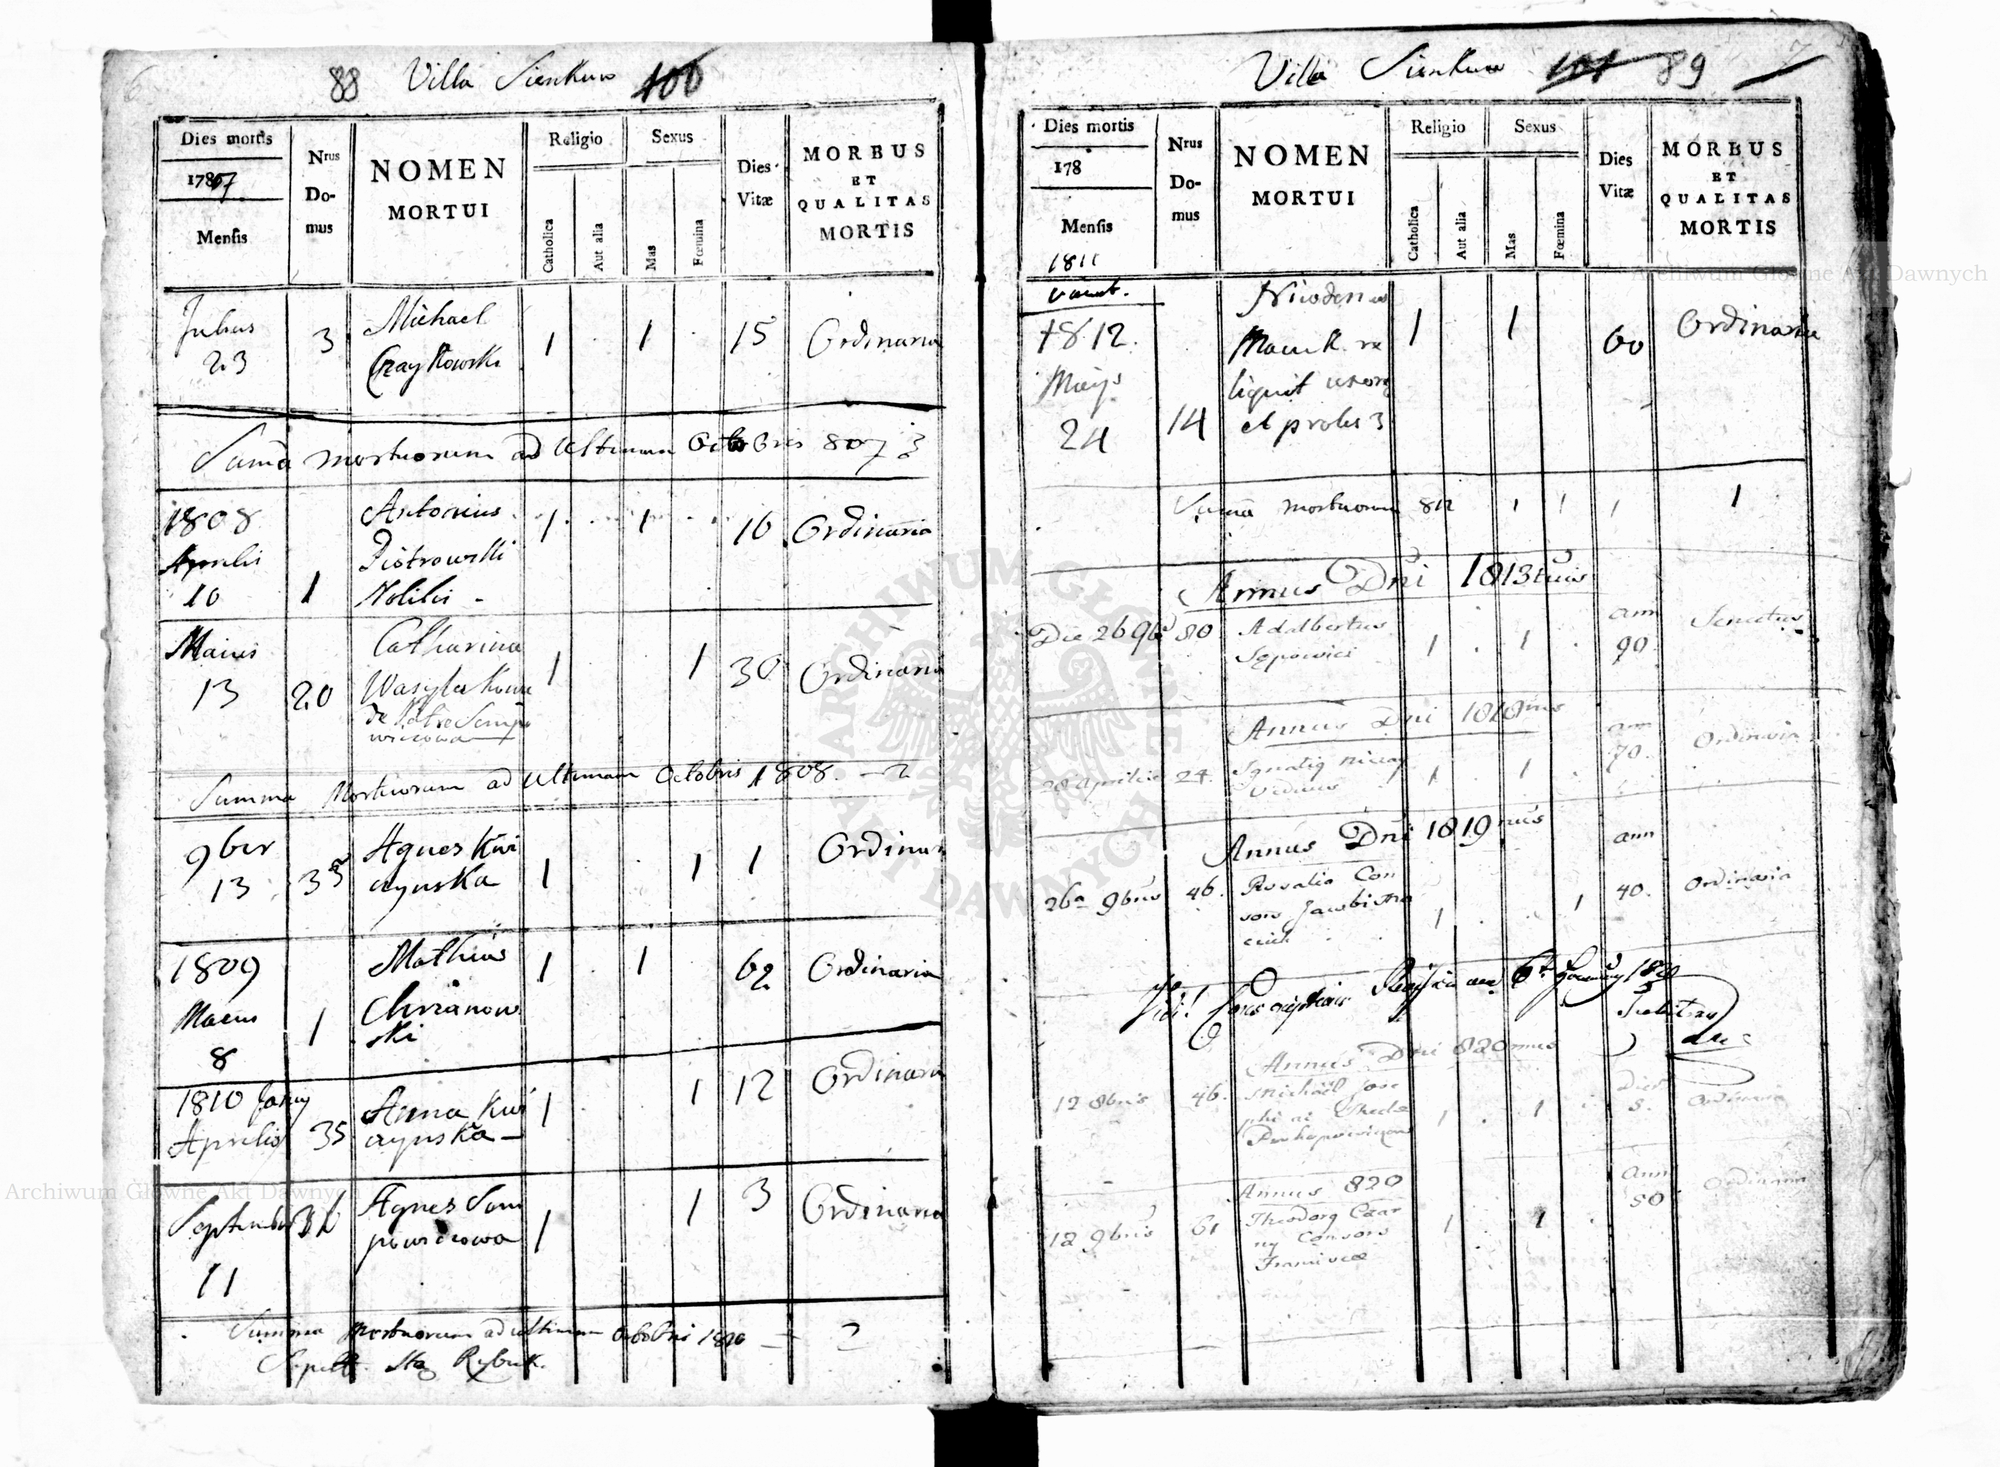 88 Villa Sienkuw 100
Dies mortis
1787
Mensis
Nrus
Do-
mus
NOMEN
MORTUI
Religio
Catholica
Aut alia
Sexus
Mas
Fœmina
Dies
Vitæ
MORBUS
ET
QUALITAS
MORTIS
Julius
23
3
Michael
Czaykowski
1 1 15 Ordinaria
Suma mortuorum ad ultimum Octobris 807 3
1808
Aprilis
10
1
Antonius
Piotrowski
Nobilis -
1 1 16 Ordinaria
Maius
13
20
Catharina
1 1 30 Ordinaria
Summa Mortuorum ad ultimam Octobris 1808. - 2
9ber
13
35
Agnes Kwi
1 1 1 Ordinar
1809
Maius
8
1
Mathias
Chrzanow
ski
1 1 62 Ordinaria
1810
Aprilis
35
Anna Kwi
1 1 12 Ordinaria
September
11
36
Agnes Sem
powiczowa
1 1 3 Ordinaria
Summa Mortuorum ad ultimum Octobris 1810 - 2
Villa Sienkuw 101 89 7
Dies mortis
178
Mensis
1811
vacat.
Nrus
Do-
mus
NOMEN
MORTUI
Religio
Catholica
Aut alia
Sexus
Mas
Fœmina
Dies
Vitæ
MORBUS
ET
QUALITAS
MORTIS
1812.
24
14
re
liquit uxorem
et proles 3
1 1 60 Ordinaria
Suma mortuorum 812 1 1 1 1
Annus Dni 1813tius
Die 26 9bris 80
Adalbertus
Sępowicz
1 1
ann
90.
Senectus
Annus Dni 1818nus
28 Aprilis 24.
Viduus
1 1
ann
70.
Ordinaria
Annus Dni 1819nus
26a 9bris 46.
Rosalia Con
sors Jacobi
1 1
ann
40.
Ordinaria
Vidi!
Annus Dni 820mus
12 8bris 46.
Michaël Jose
phi et Theclæ
1 1
Dies
8.
Ordinaria
Annus 820
12 9bris 61
Consors
Franciscæ
1 1
Ann
50
Ordinaria
ARCHIWUM GŁÓWNE
AKT DAWNYCH
Archiwum Główne Akt Dawnych
Archiwum Główne Akt Dawnych